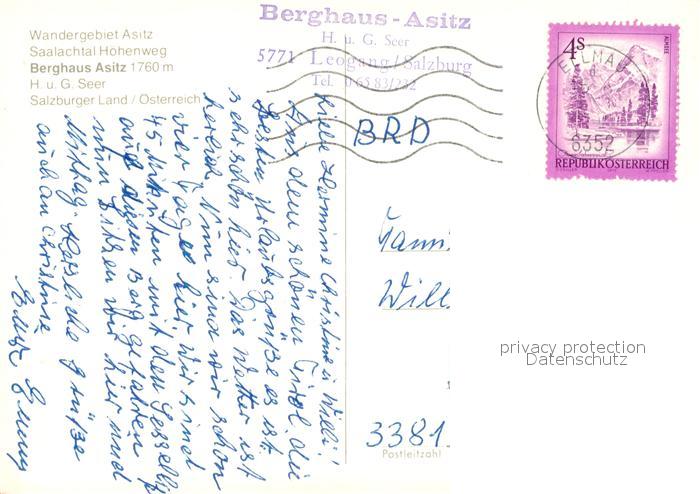 Wandergebiet Asitz
Saalachtal Höhenweg
Berghaus Asitz 1760 m
H. u. G. Seer
Salzburger Land / Österreich
Berghaus-Asitz
H. u. G. Seer
5771 Leogang/Salzburg
Tel. 06583/232
4S
ALMSEE
REPUBLIK ÖSTERREICH
ELLMAU
6352
BRD
Liebe Hermine Christine u Willi!
Aus dem schönen Tirol die
besten Urlaubsgrüße es ist
sehr schön hier. Das Wetter ist
herrlich. Nun sind wir schon
vier Tage hier. Wir sind
45 Minuten mit den Sessellift
auf diesen Berg gefahren
nun sitzen wir hier und
Mittag. Herzliche Grüße
auch an Christine
Emmy
Fami
Will
3381
Postleitzahl
privacy protection
Datenschutz